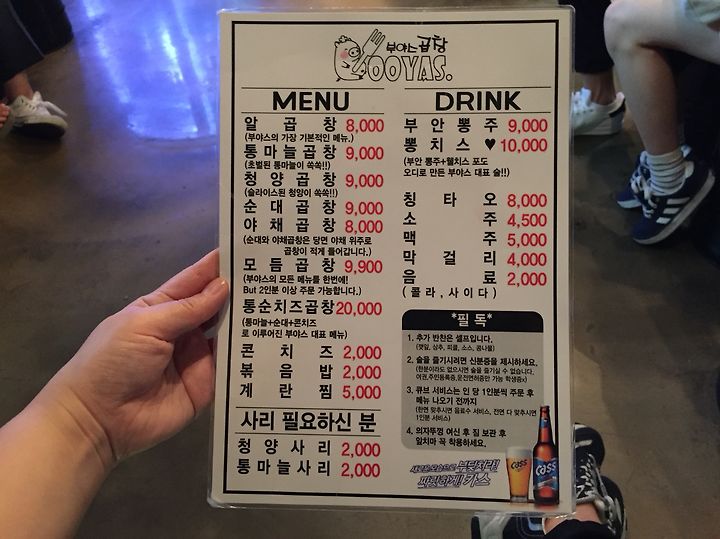 부야스곱창
OOYAS.
MENU
알곱창 8,000
(부야스의 가장 기본적인 메뉴.)
통마늘곱창 9,000
(초벌된 통마늘이 쏙쏙!!)
청양곱창 9,000
(슬라이스된 청양이 쏙쏙!!)
순대곱창 9,000
야채곱창 8,000
(순대와 야채곱창은 당면 야채 위주로
곱창이 적게 들어갑니다.)
모듬곱창 9,900
(부야스의 모든 메뉴를 한번에!
But 2인분 이상 주문 가능합니다.)
통순치즈곱창 20,000
(통마늘+순대+콘치즈
로 이루어진 부야스 대표 메뉴)
콘치즈 2,000
볶음밥 2,000
계란찜 5,000
사리 필요하신 분
청양사리 2,000
통마늘사리 2,000
DRINK
부안뽕주 9,000
뽕치스♥ 10,000
(부안 뽕주+웰치스 포도
오디로 만든 부야스 대표 술!!)
칭타오 8,000
소주 4,500
맥주 5,000
막걸리 4,000
음료 2,000
(콜라,사이다)
*필독*
1. 추가 반찬은 셀프입니다.
(깻잎, 상추, 피클, 소스, 콩나물)
2. 술을 즐기시려면 신분증을 제시하세요.
(한분이라도 없으시면 술을 즐기실 수 없습니다.
여권,주민등록증,운전면허증만 가능 학생증x)
3. 큐브 서비스는 인 당 1인분씩 주문 후
메뉴 나오기 전까지
(한면 맞추시면 음료수 서비스, 전면 다 맞추시면
1인분 서비스)
4. 의자뚜껑 여신 후 짐 보관 후
앞치마 꼭 착용하세요.
새로운 모습으로 부딪쳐라!
짜릿하게! 카스
cass
cass